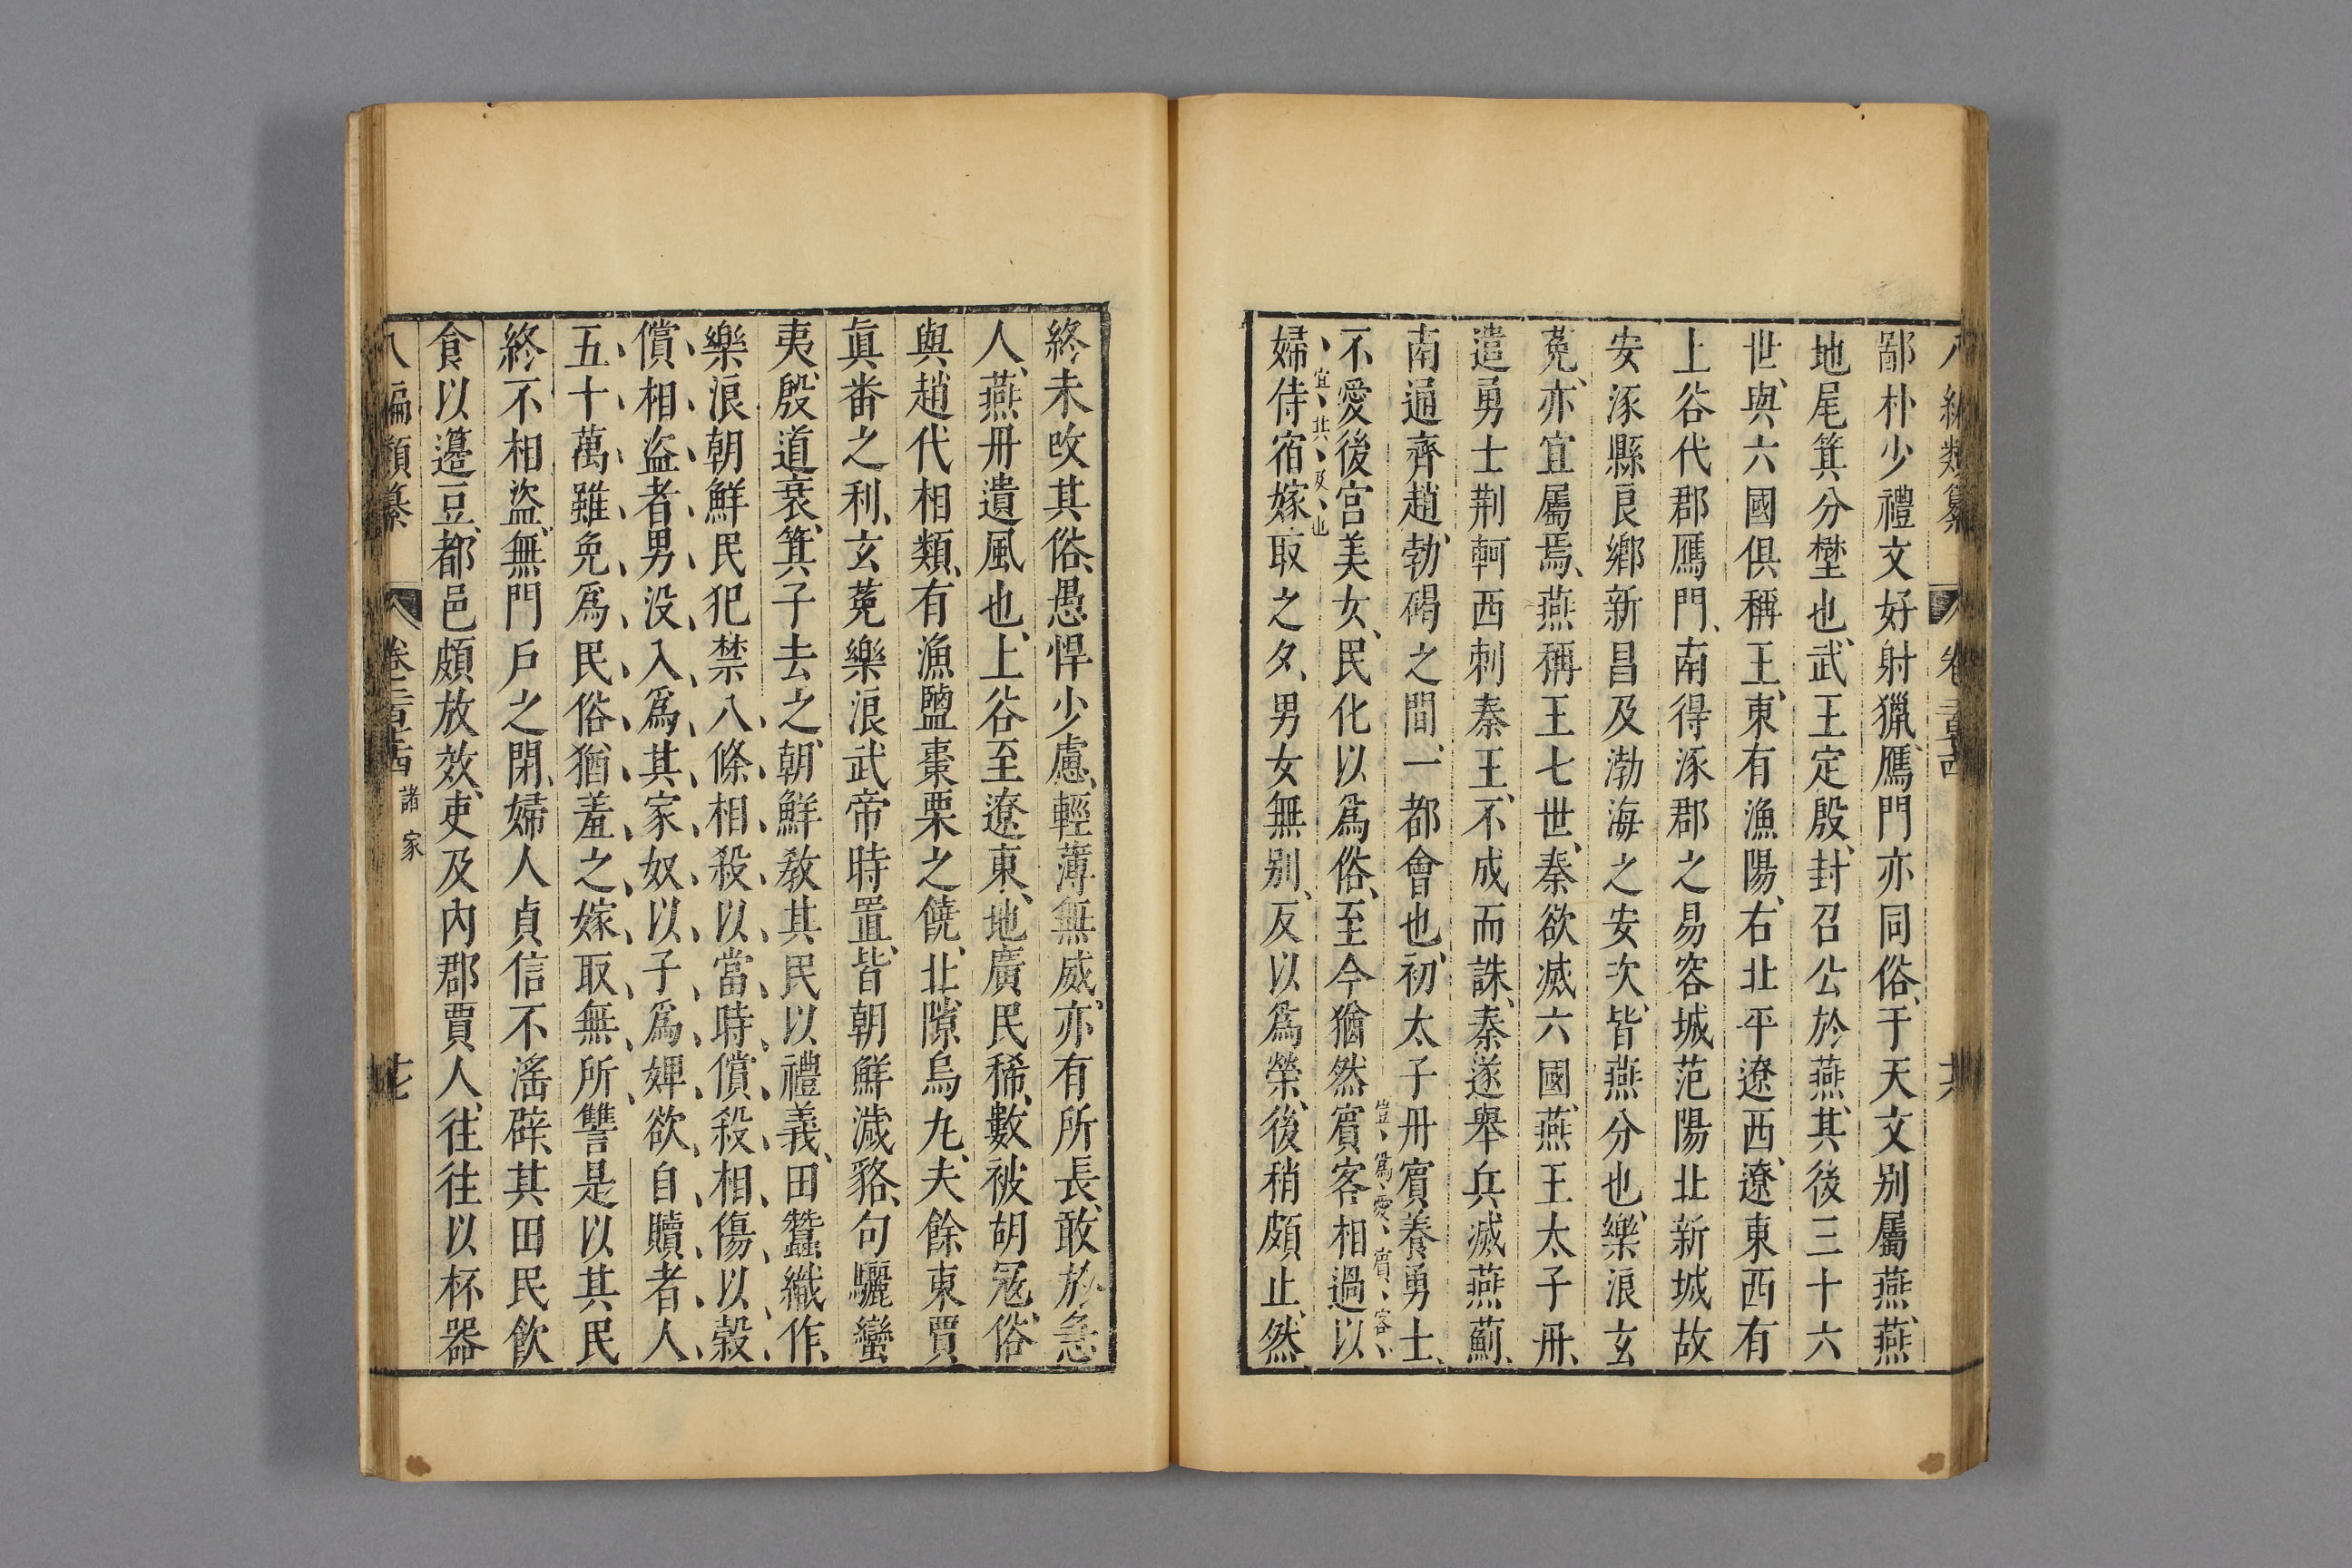 八編類纂 卷二百四 十六
鄙朴少禮文好射獵、鴈門亦同俗、于天文别屬燕、燕
地尾箕分壄也、武王定殷、封召公於燕、其後三十六
世、與六國俱稱王、東有漁陽、右北平遼西、遼東西有
上谷代郡鴈門、南得涿郡之易容城范陽北新城故
安涿縣良鄉新昌及渤海之安次、皆燕分也、樂浪玄
菟、亦宜屬焉、燕稱王七世、秦欲滅六國、燕王太子丹、
遣勇士荆軻西刺秦王、不成而誅、秦遂舉兵滅燕薊、
南通齊趙、勃碣之間、一都會也、初太子丹賔養勇士、
豈為愛賔客
不愛後宮美女、民化以爲俗、至今猶然賔客相過以、
宜其反也
婦侍宿嫁取之夕、男女無别、反以爲榮、後稍頗止、然
終未攺其俗、愚悍少慮、輕薄無威、亦有所長、敢於急
人、燕丹遺風也、上谷至遼東、地廣民稀、數被胡冦、俗
與趙代相類、有漁鹽棗栗之饒、北隙烏九、夫餘東賈
眞番之利、玄菟樂浪武帝時置、皆朝鮮濊貉、句驪蠻
夷、殷道衰、箕子去之、朝鮮教其民以禮義、田蠶織作、
樂浪朝鮮民犯禁八條、相殺以當時償殺、相傷以穀
償、相盜者男没入爲其家奴、以子爲婢、欲自贖者人
五十萬、雖免爲民、俗猶羞之、嫁取無所讐、是以其民
終不相盜、無門戸之閉、婦人貞信不滛辟、其田民飮
食以籩豆、都邑頗放效、吏及内郡賈人、往往以杯器
八編類纂 卷二百四 諸家 十七